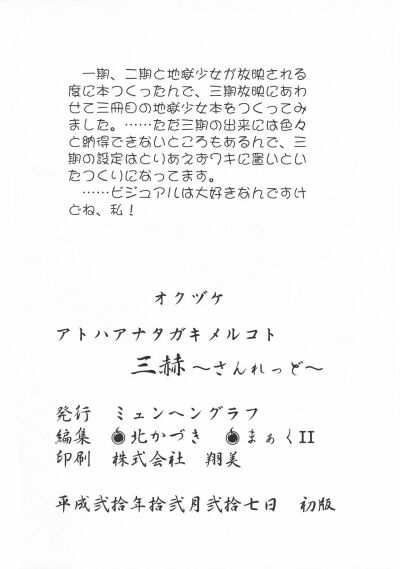 一期、二期と地獄少女が放映される
度に本つくったんで、三期放映にあわ
せて三冊目の地獄少女本をつくってみ
ました。……ただ三期の出来には色々
と納得できないところもあるんで、三
期の設定はとりあえずワキに置いとい
たつくりになってます。
……ビジュアルは大好きなんですけ
どね、私！
オクヅケ
アトハアナタガキメルコト
三赫～さんれっど～
発行 ミュンヘングラフ
編集 ●北かづき ●まぁくII
印刷 株式会社 翔美
平成弐拾年拾弐月弐拾七日 初版